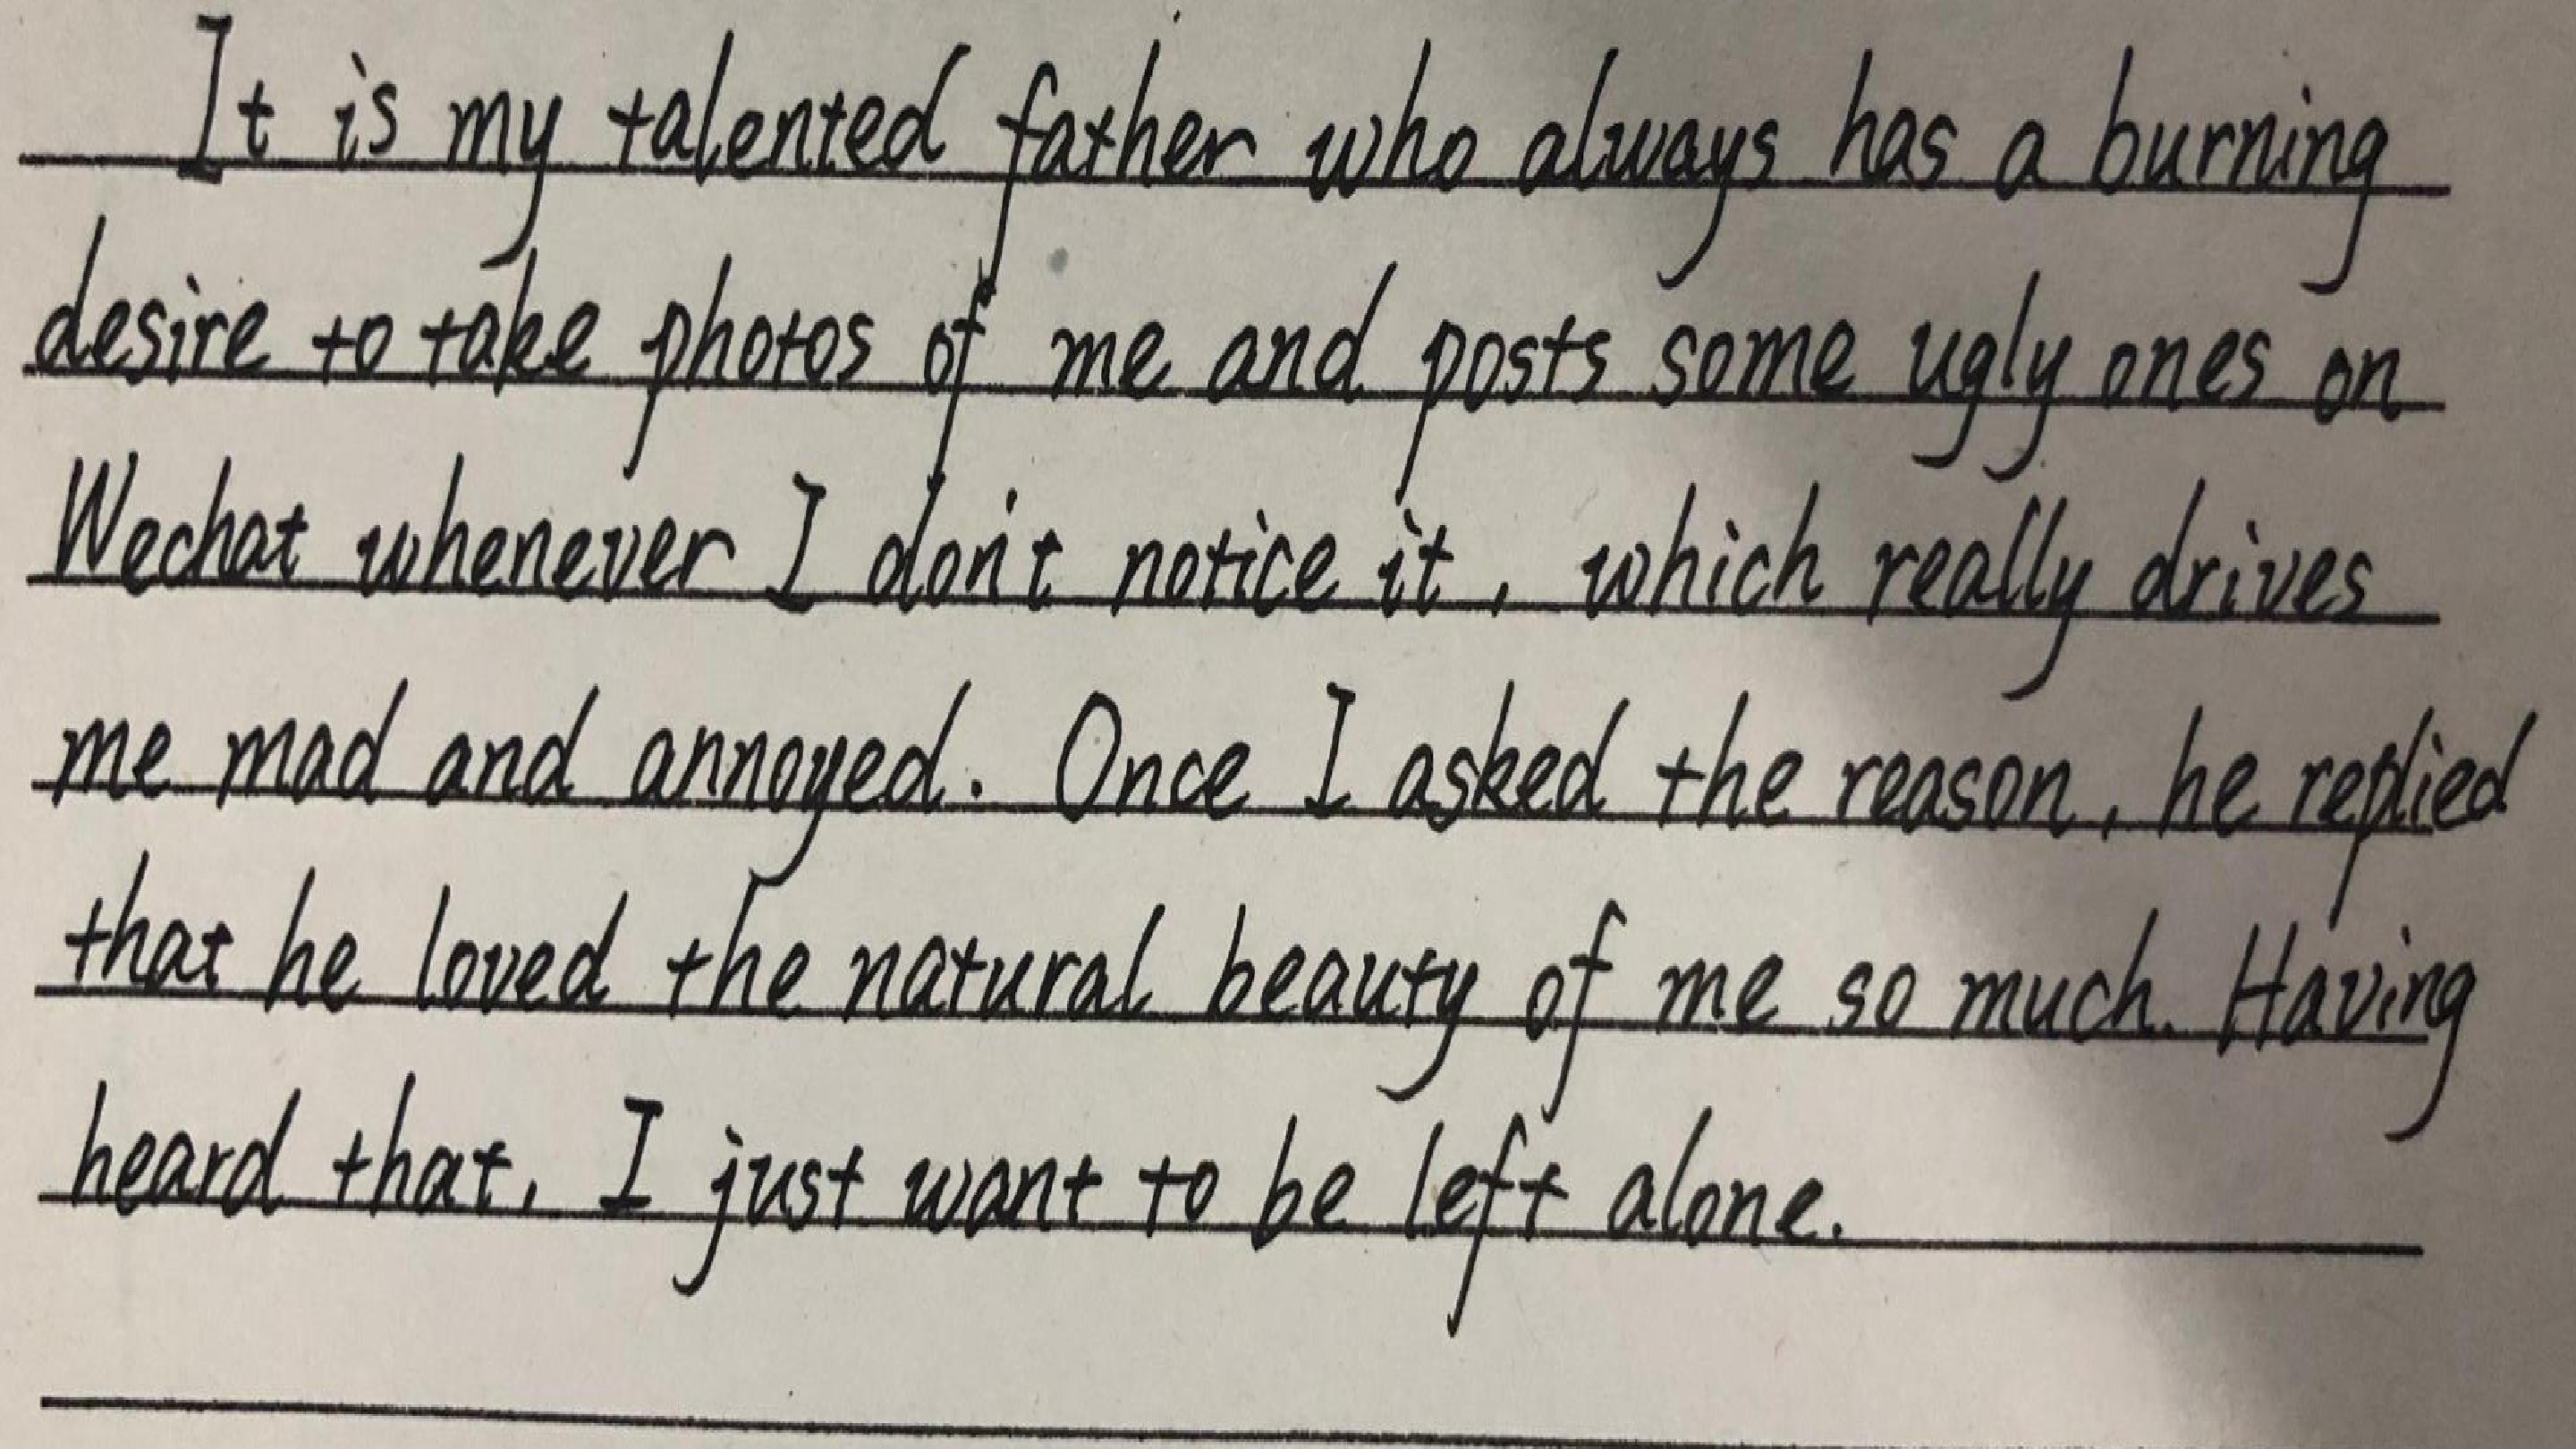 It is my talented father who always has a burning
desire to take photos of me and posts some ugly ones on
Wechat whenever I don't notice it, which really drives
me mad and annoyed. Once I asked the reason, he replied
that he loved the natural beauty of me so much. Having
heard that, I just want to be left alone.